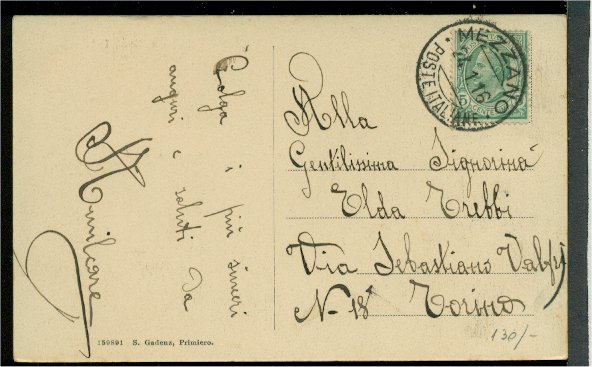 Colga i più sinceri
auguri e saluti da
Amilcare
159891 S. Gadenz, Primiero.
MEZZANO
POSTE ITALIANE
Alla
Gentilissima Signorina
Elda Trebbi
Via Sebastiano Valfrè
N. 18
Torino
130/-